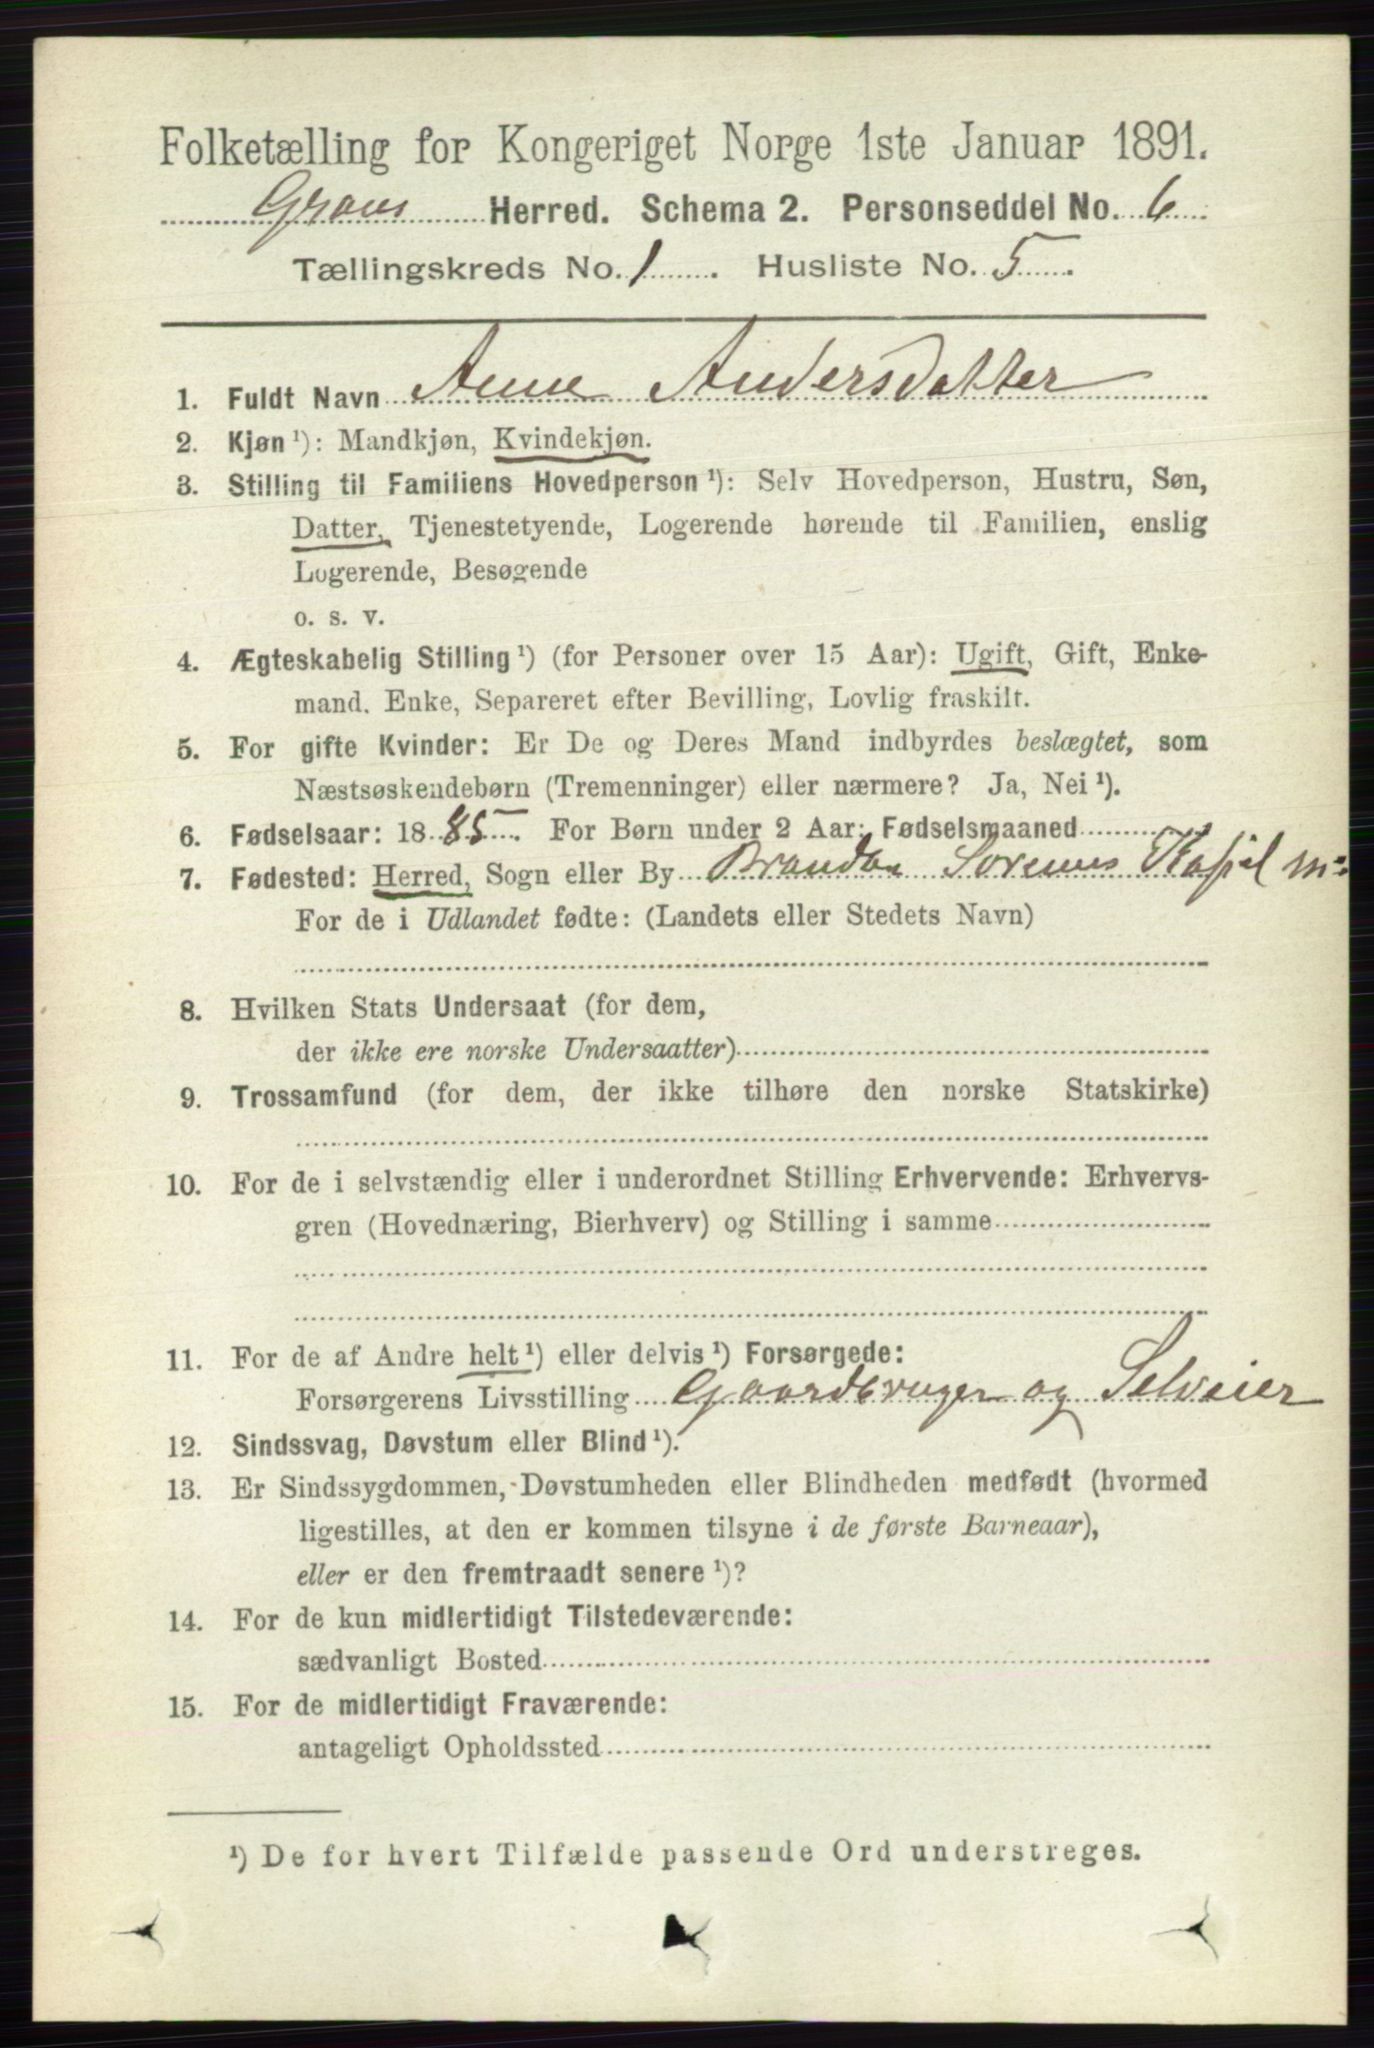 Folketælling for Kongeriget Norge 1ste Januar 1891.
Grans Herred. Schema 2. Personseddel No. 6
Tællingskreds No. 1. Husliste No. 5.
1. Fuldt Navn Anne Andersdatter
2. Kjøn ¹): Mandkjøn, Kvindekjøn.
3. Stilling til Familiens Hovedperson ¹): Selv Hovedperson, Hustru, Søn,
Datter, Tjenestetyende, Logerende hørende til Familien, enslig
Logerende, Besøgende
o. s. v.
4. Ægteskabelig Stilling ¹) (for Personer over 15 Aar): Ugift, Gift, Enke-
mand. Enke, Separeret efter Bevilling, Lovlig fraskilt.
5. For gifte Kvinder: Er De og Deres Mand indbyrdes beslægtet, som
Næstsøskendebørn (Tremenninger) eller nærmere? Ja, Nei ¹).
6. Fødselsaar: 1885. For Børn under 2 Aar: Fødselsmaaned
7. Fødested: Herred, Sogn eller By Brandbu
For de i Udlandet fødte: (Landets eller Stedets Navn)
8. Hvilken Stats Undersaat (for dem,
der ikke ere norske Undersaatter)
9. Trossamfund (for dem, der ikke tilhøre den norske Statskirke)
10. For de i selvstændig eller i underordnet Stilling Erhvervende: Erhvervs-
gren (Hovednæring, Bierhverv) og Stilling i samme
11. For de af Andre helt ¹) eller delvis ¹) Forsørgede:
Forsørgerens Livsstilling Gaardbruger og Selveier
12. Sindssvag, Døvstum eller Blind ¹).
13. Er Sindssygdommen, Døvstumheden eller Blindheden medfødt (hvormed
ligestilles, at den er kommen tilsyne i de første Barneaar),
eller er den fremtraadt senere ¹)?
14. For de kun midlertidigt Tilstedeværende:
sædvanligt Bosted
15. For de midlertidigt Fraværende:
antageligt Opholdssted
¹) De for hvert Tilfælde passende Ord understreges.